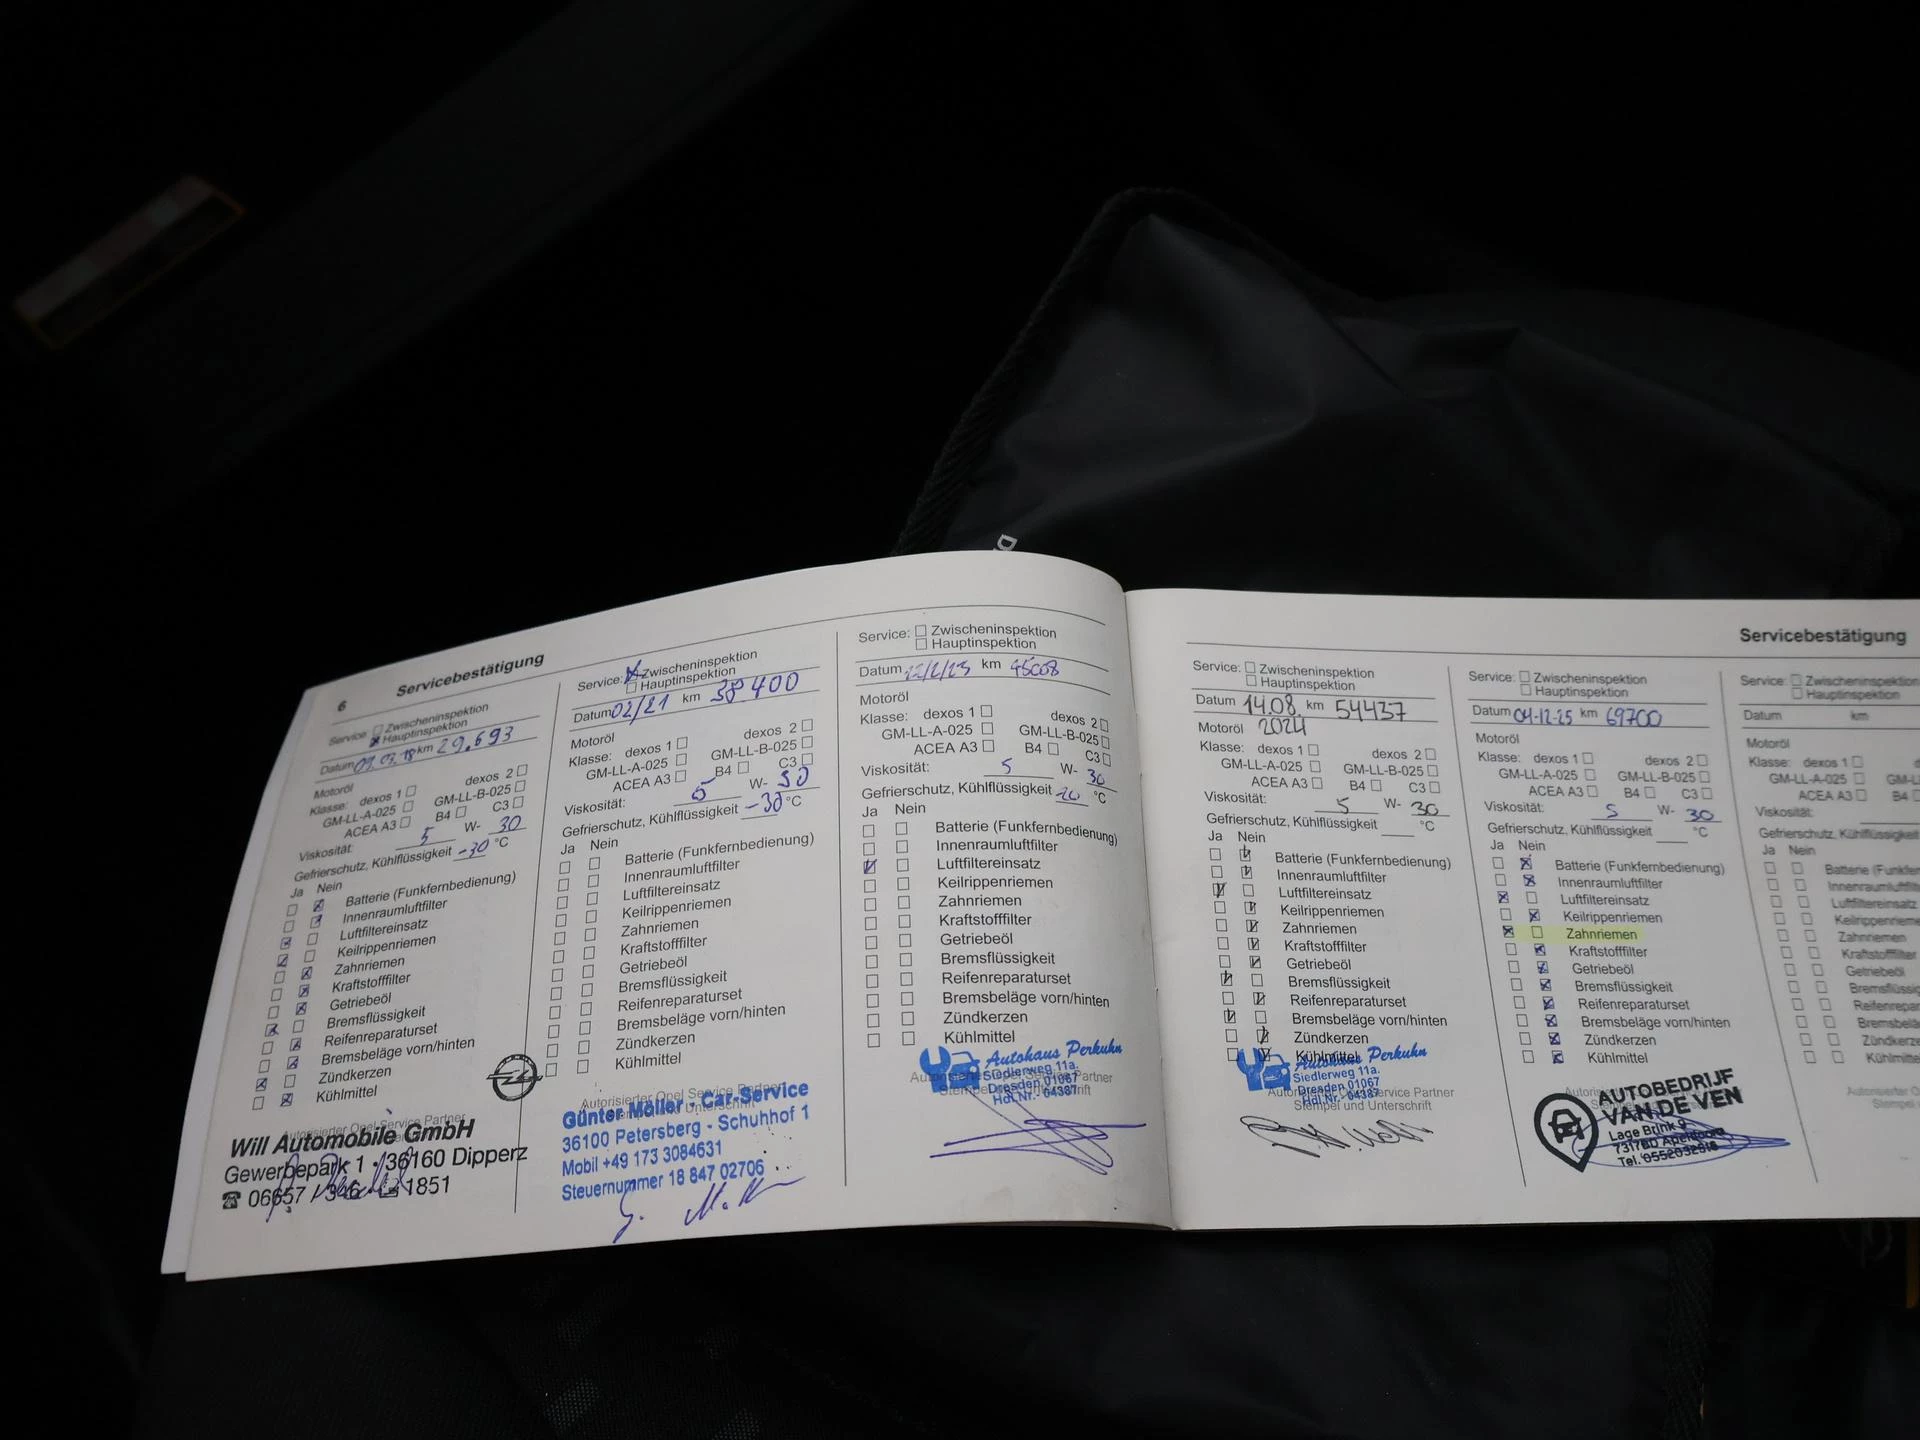 6
Servicebestätigung
Service: Zwischeninspektion
Hauptinspektion
Datum km 29.693
Motoröl
Klasse: dexos 1 dexos 2
GM-LL-A-025 GM-LL-B-025
ACEA A3 B4 C3
Viskosität: 5 W- 30
Gefrierschutz, Kühlflüssigkeit -30 °C
Ja Nein
Batterie (Funkfernbedienung)
Innenraumluftfilter
Luftfiltereinsatz
Keilrippenriemen
Zahnriemen
Kraftstofffilter
Getriebeöl
Bremsflüssigkeit
Reifenreparaturset
Bremsbeläge vorn/hinten
Zündkerzen
Kühlmittel
Autorisierter Opel Service Partner
Will Automobile GmbH
Gewerbepark 1 · 36160 Dipperz
Service: Zwischeninspektion
Hauptinspektion
Datum 02/21 km 38400
Motoröl
Klasse: dexos 1 dexos 2
GM-LL-A-025 GM-LL-B-025
ACEA A3 B4 C3
Viskosität: 5 W- 30
Gefrierschutz, Kühlflüssigkeit -30 °C
Ja Nein
Batterie (Funkfernbedienung)
Innenraumluftfilter
Luftfiltereinsatz
Keilrippenriemen
Zahnriemen
Kraftstofffilter
Getriebeöl
Bremsflüssigkeit
Reifenreparaturset
Bremsbeläge vorn/hinten
Zündkerzen
Kühlmittel
Autorisierter Opel Service Partner
Günter Möller - Car-Service
36100 Petersberg - Schuhhof 1
Mobil +49 173 3084631
Steuernummer 18 847 02706
Service: Zwischeninspektion
Hauptinspektion
Datum km 45008
Motoröl
Klasse: dexos 1 dexos 2
GM-LL-A-025 GM-LL-B-025
ACEA A3 B4 C3
Viskosität: 5 W- 30
Gefrierschutz, Kühlflüssigkeit °C
Ja Nein
Batterie (Funkfernbedienung)
Innenraumluftfilter
Luftfiltereinsatz
Keilrippenriemen
Zahnriemen
Kraftstofffilter
Getriebeöl
Bremsflüssigkeit
Reifenreparaturset
Bremsbeläge vorn/hinten
Zündkerzen
Kühlmittel
Autohaus Perkuhn
Siedlerweg 11a.
Dresden 01067
Hdl.Nr. 04387
Servicebestätigung
Service: Zwischeninspektion
Hauptinspektion
Datum 14.08. km 54437
Motoröl 2024
Klasse: dexos 1 dexos 2
GM-LL-A-025 GM-LL-B-025
ACEA A3 B4 C3
Viskosität: 5 W- 30
Gefrierschutz, Kühlflüssigkeit °C
Ja Nein
Batterie (Funkfernbedienung)
Innenraumluftfilter
Luftfiltereinsatz
Keilrippenriemen
Zahnriemen
Kraftstofffilter
Getriebeöl
Bremsflüssigkeit
Reifenreparaturset
Bremsbeläge vorn/hinten
Zündkerzen
Kühlmittel
Autohaus Perkuhn
Siedlerweg 11a.
Dresden 01067
Hdl.Nr. 04387
Stempel und Unterschrift
Service: Zwischeninspektion
Hauptinspektion
Datum 04-12-25 km 69700
Motoröl
Klasse: dexos 1 dexos 2
GM-LL-A-025 GM-LL-B-025
ACEA A3 B4 C3
Viskosität: 5 W- 30
Gefrierschutz, Kühlflüssigkeit °C
Ja Nein
Batterie (Funkfernbedienung)
Innenraumluftfilter
Luftfiltereinsatz
Keilrippenriemen
Zahnriemen
Kraftstofffilter
Getriebeöl
Bremsflüssigkeit
Reifenreparaturset
Bremsbeläge vorn/hinten
Zündkerzen
Kühlmittel
AUTOBEDRIJF
VAN DE VEN
Lage Brink 9
7317BD Apeldoorn
Service: Zwischeninspektion
Hauptinspektion
Datum km
Motoröl
Klasse: dexos 1
GM-LL-A-025
ACEA A3
Viskosität:
Gefrierschutz, Kühlflüssigkeit
Ja Nein
Innenraumluftfilter
Luftfiltereinsatz
Zahnriemen
Kraftstofffilter
Getriebeöl